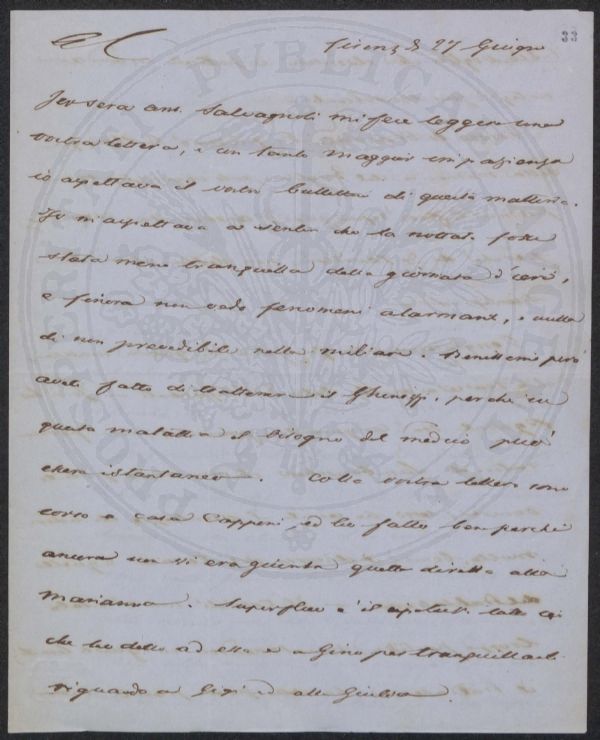 33
Firenze 27 Giugno
Jer sera ant. Salvagnoli mi fece leggere una
vostra lettera, e con tanto maggior impazienza
io aspettava il vostro bullettino di questa mattina.
Io m'aspettava a sentir che la nottata fosse
stata meno tranquilla della giornata d'ieri,
e finora non vedo fenomeni alarmanti, e nulla
di non prevedibile nella miliare. Benissimo però
avete fatto di trattenere il Ghinozzi, perchè in
questa malattia il bisogno del medico può
essere istantaneo. Colla vostra lettera sono
corso a casa Capponi, ed ho fatto ben perchè
ancora non vi era giunta quella diretta alla
Marianna. Superfluo è il ripetervi tutto ciò
che ho detto ad essa e a Gino per tranquillarli
riguardo a Gigi ed alla Giulia.
PROSPERITATI PUBLICAE